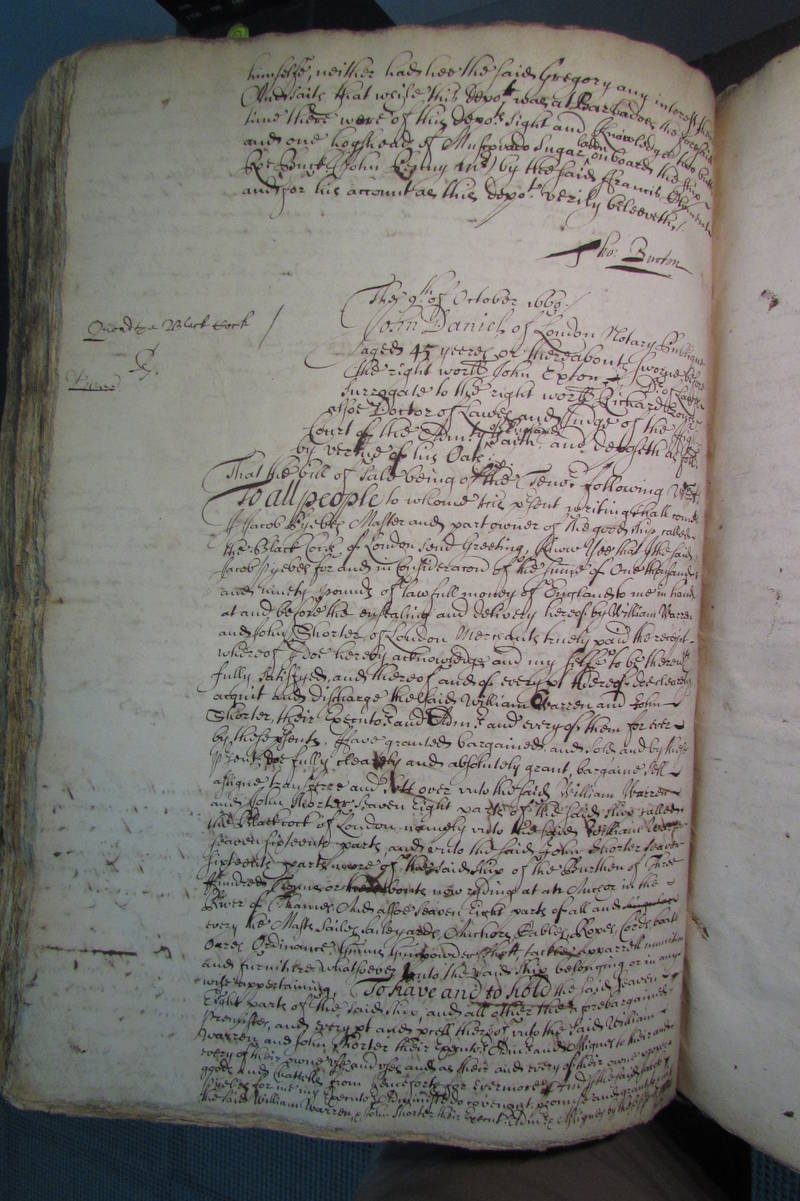 himselfe, neither had hee the said Gregory any interest
And saith that whilst this depot was at Barbados the
time there were of this depots sight and knowledge two butts
and one hogshead of Muscovado sugar laden onboard the ship
John Penny Mr) by the said Francis
and for his account as this depot verily beleeveth,
Tho: Burton
The 9th of October 1660
John Daniel of London Notary Publique
aged 45 yeeres or thereabouts sworne before
the right worll John Exton Dr of Lawes
surrogate to the right worll Richard
alsoe Doctor of Lawes and Judge of the High
Court of the Admty saith and deposeth as
by vertue of his Oath
Black Cock
That the bill of sale being of the Tenor following vizt
To all people to whome this psent writing shall come
I Jacob Pyebes Master and part owner of the good ship called
the Black Cock of London send Greeting, Know Yee that I the said
Jacob Pyebes for and in consideracon of the summe of One thousand
and ninety pounds of lawfull money of England to me in hand
at and before the ensealing and delivery hereof by William Warren
and John Shorter of London Merchants truely paid the receipt
whereof I doe hereby acknowledge and my selfe to be therewth
fully satisfyed, and thereof and of every pt thereof doe clearely
acquit and discharge the said William Warren and John
Shorter, their Executors and Admrs and every of them for ever
by these psents, Have granted bargained and sold and by these
psents doe fully clearely and absolutely grant, bargaine sell
assigne transferre and sett over unto the said William Warren
and John Shorter seaven Eight parts of the said ship called
the Blackcock of London namely unto the said William Warren
seaven sixteenth parts and unto the said John Shorter seaven
sixteenth parts more of the said ship of the Burthen of Three
hundred Tonns or thereabouts now riding at an Anchor in the
River of Thames, And alsoe seaven Eight parts of all and singular
every the Masts Sailes saileyards, Anchors Cables, Ropes, Cords, boats
Oares, Ordinance, Gunns Gunpowder shott tackle apparrell munition
and furniture whatsoever unto the said ship belonging or in any
wise appertaining, To have and to hold the said seaven
Eight parts of the said ship, and all other the prebargained
Premisses, and every pt and pcell thereof unto the said William
Warren and John Shorter their Executors Admrs and Assignes to their and
every of their owne use and uses and as their and every of their owne proper
goods and Chattells from henceforth for Evermore, And I the said Jacob
Pyebes for me my Executors Administ do covenant, promise and grant to and with
the said William Warren & John Shorter their Execut Admrs & Assignes by these